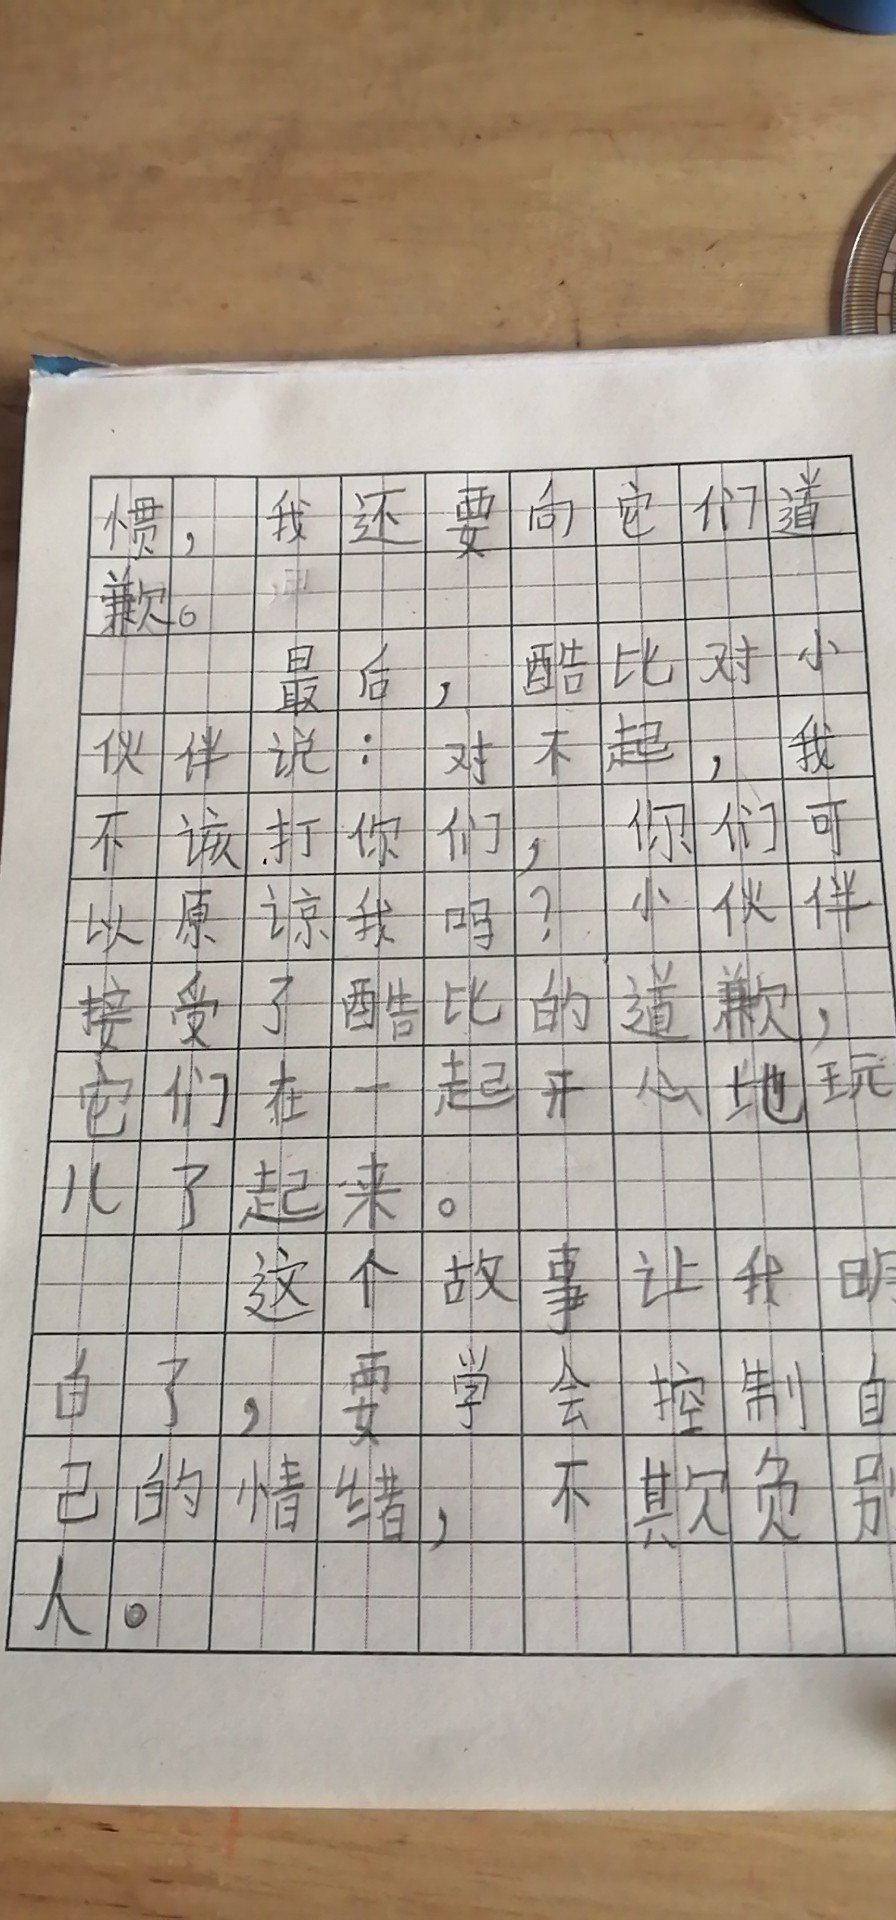 惯，我还要向它们道
歉。
最后，酷比对小
伙伴说：对不起，我
不该打你们，你们可
以原谅我吗？小伙伴
接受了酷比的道歉，
它们在一起开心地玩
儿了起来。
这个故事让我明
白了，要学会控制自
己的情绪，不欺负别
人。